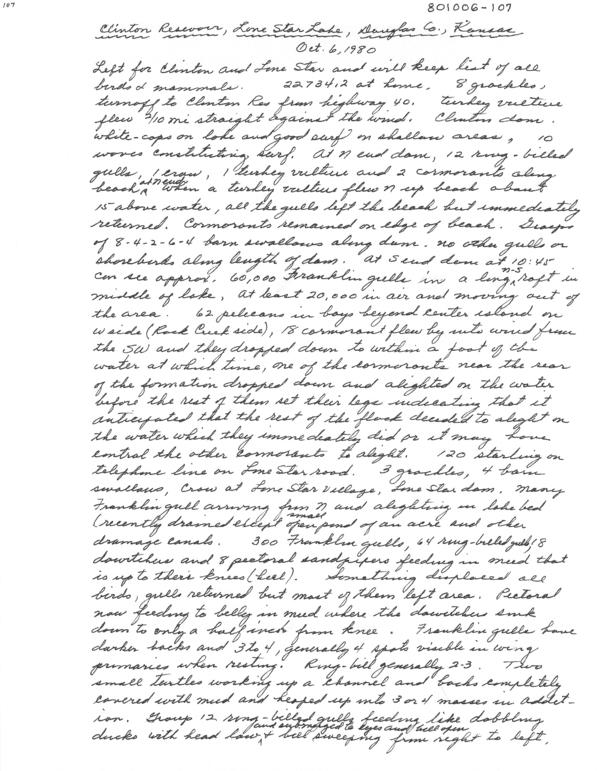 107
801006-107
Clinton Resevoir, Lone Star Lake, Douglas Co., Kansas
Oct. 6, 1980
Left for Clinton and Lone Star and will keep list of all
birds & mammals. 22734.2 at home. 8 grackles,
turnoff to Clinton Res from highway 40. Turkey vulture
flew 2/10 mi straight against the wind. Clinton dam.
white-caps on lake and good surf on shallow areas, 10
waves constituting surf. At N end dam, 12 ring-billed
gulls, 1 crow, 1 turkey vulture and 2 cormorants along
beach at N end, when a turkey vulture flew N up beach about
15 above water, all the gulls left the beach but immediately
returned. Cormorants remained on edge of beach. Groups
of 8-4-2-6-4 barn swallows along dam. no other gulls or
shorebirds along length of dam. At S end dam at 10:45
can see approx. 60,000 Franklin gulls in a long N-S raft in
middle of lake, at least 20,000 in air and moving out of
the area. 62 pelicans in bay beyond center island on
W side (Rock Creek side), 18 cormorant flew by into wind from
the SW and they dropped down to within a foot of the
water at which time, one of the cormorants near the rear
of the formation dropped down and alighted on the water
before the rest of them set their legs indicating that it
anticipated that the rest of the flock decided to alight on
the water which they immediately did or it may have
control the other cormorants to alight. 120 starling on
telephone line on Lone Star road. 3 grackles, 4 barn
swallows, Crow at Lone Star Village, Lone Star dam. Many
Franklin gull arriving from N and alighting in lake bed
(recently drained except small open pond of an acre and other
drainage canals. 300 Franklin gulls, 64 ring-billed gulls, 18
dowitchers and 8 pectoral sandpipers feeding in mud that
is up to their knees (heel). Something displaced all
birds, gulls returned but most of them left area. Pectoral
now feeding to belly in mud where the dowitchers sink
down to only a half inch from knee. Franklin gulls have
darker backs and 3 to 4, generally 4 spots visible in wing
primaries when resting. Ring-bill generally 2-3. Two
small turtles working up a channel and backs completely
covered with mud and heaped up into 3 or 4 masses in addit-
ion. Group 12 ring-billed gulls feeding like dabbling
ducks with head low and submerged to eyes and bill open + bill sweeping from right to left.